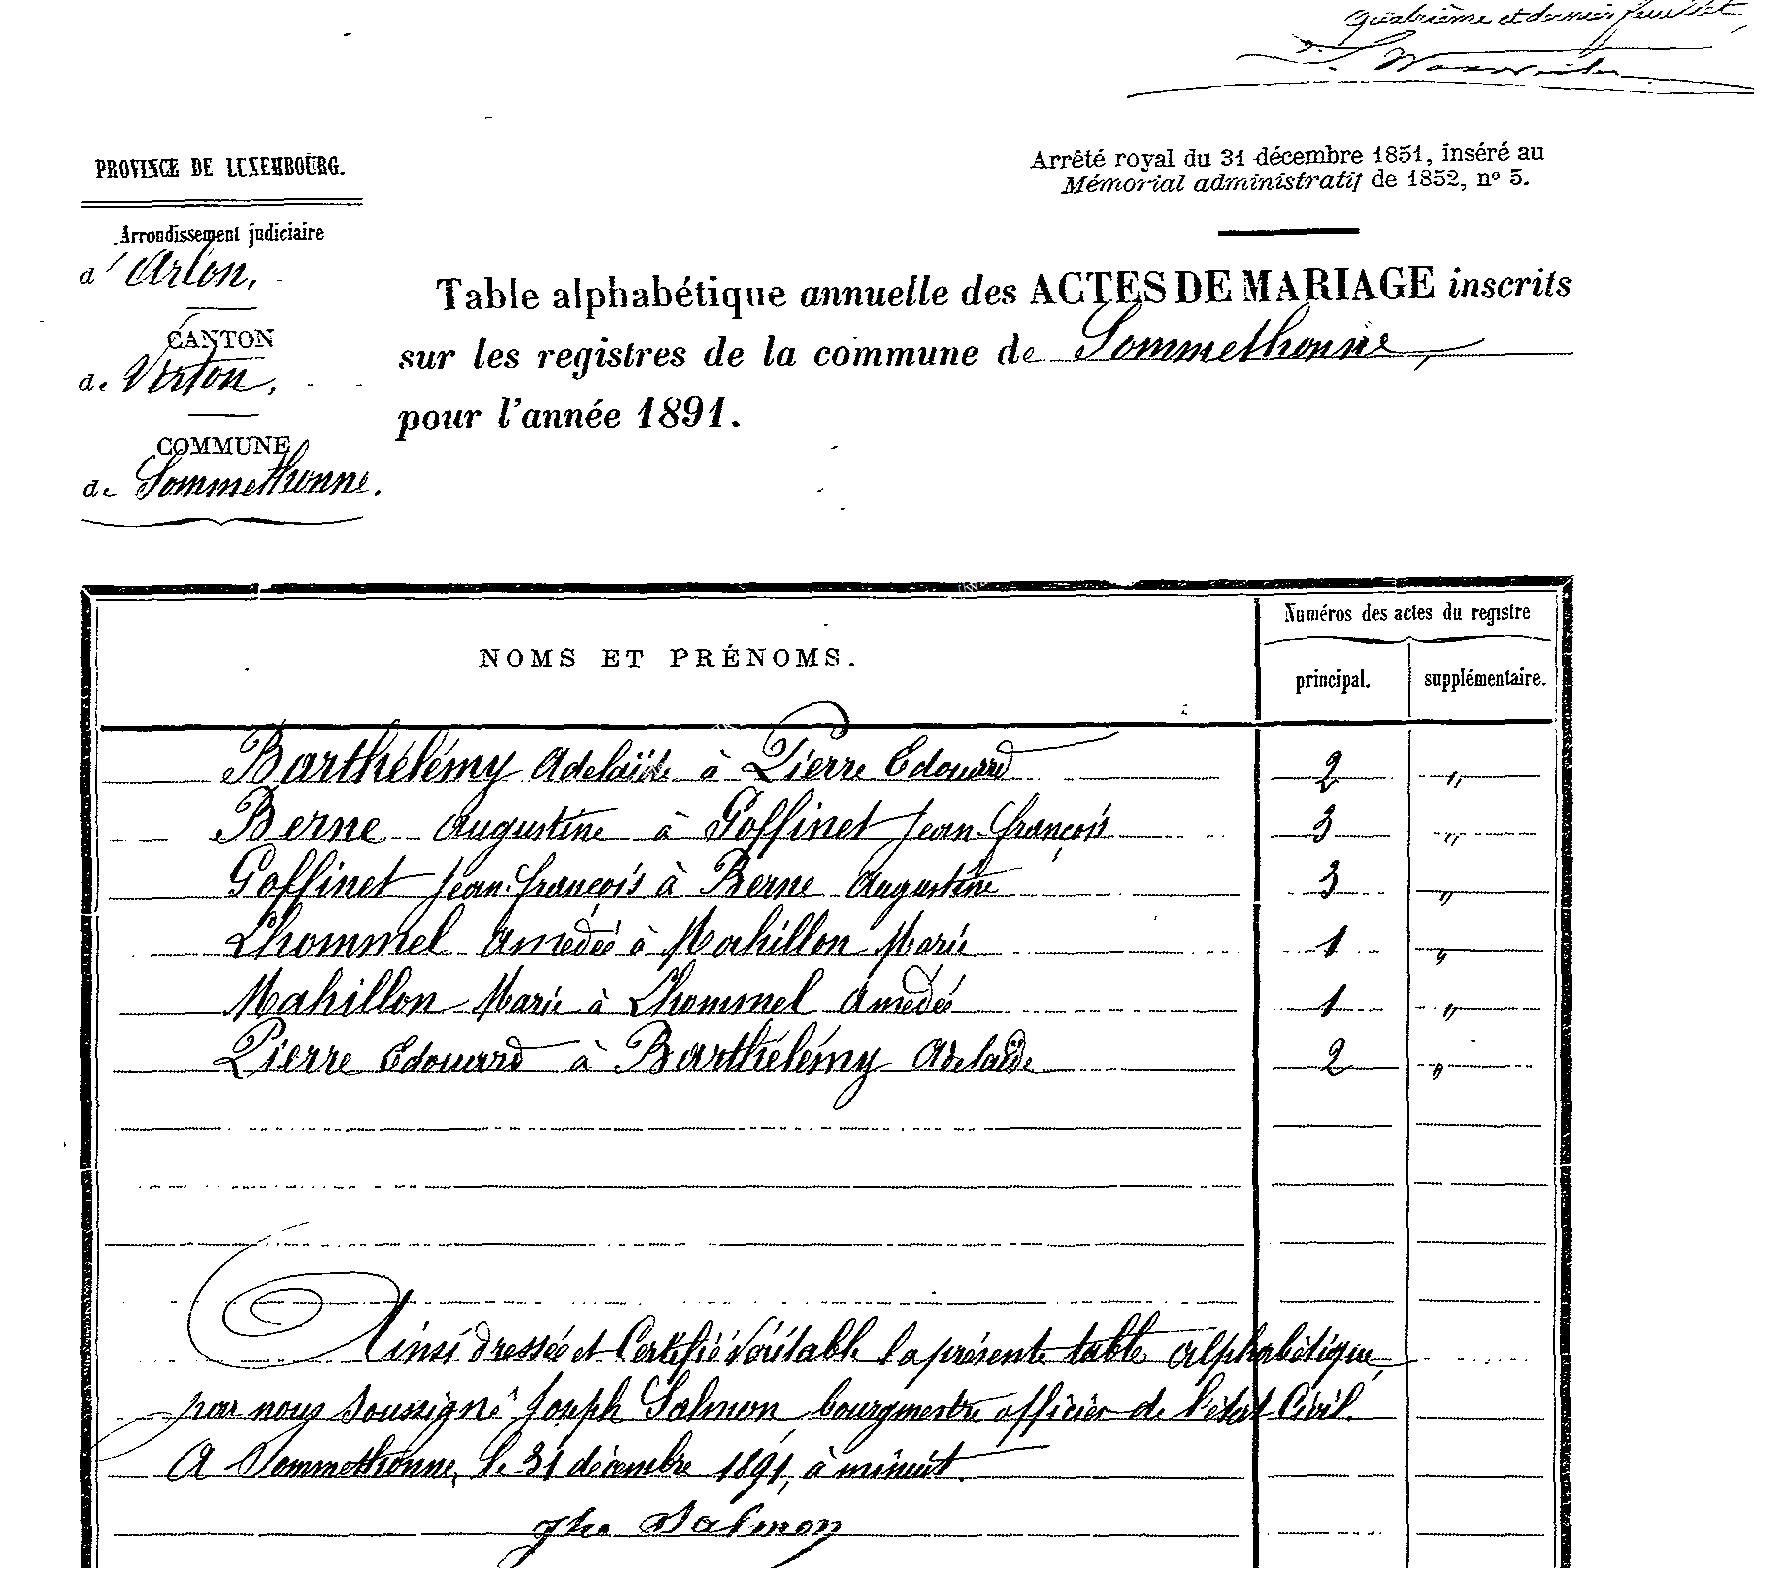 Quatrième et dernier feuillet,
PROVINCE DE LUXEMBOURG.
Arrondissement judiciaire
d'Arlon,
CANTON
de Virton,
COMMUNE
de Sommethonne.
Arrêté royal du 31 décembre 1851, inséré au
Mémorial administratif de 1852, nº 5.
Table alphabétique annuelle des ACTES DE MARIAGE inscrits
sur les registres de la commune de Sommethonne,
pour l'année 1891.
NOMS ET PRÉNOMS.
Numéros des actes du registre
principal. supplémentaire.
Barthélémy Adelaïde à Pierre Edouard 2 "
Berne Augustine à Goffinet Jean-françois 3 "
Goffinet Jean-françois à Berne Augustine 3 "
Lhommel Amédée à Mahillon Marie 1 "
Mahillon Marie à Lhommel Amédée 1 "
Pierre Edouard à Barthélémy Adelaïde 2 "
Ainsi dressée et Certifié Véritable la présente table alphabétique
par nous soussigné Joseph Salmon, bourgmestre officier de l'état Civil.
A Sommethonne, le 31 décembre 1891, à minuit.
Jh. Salmon